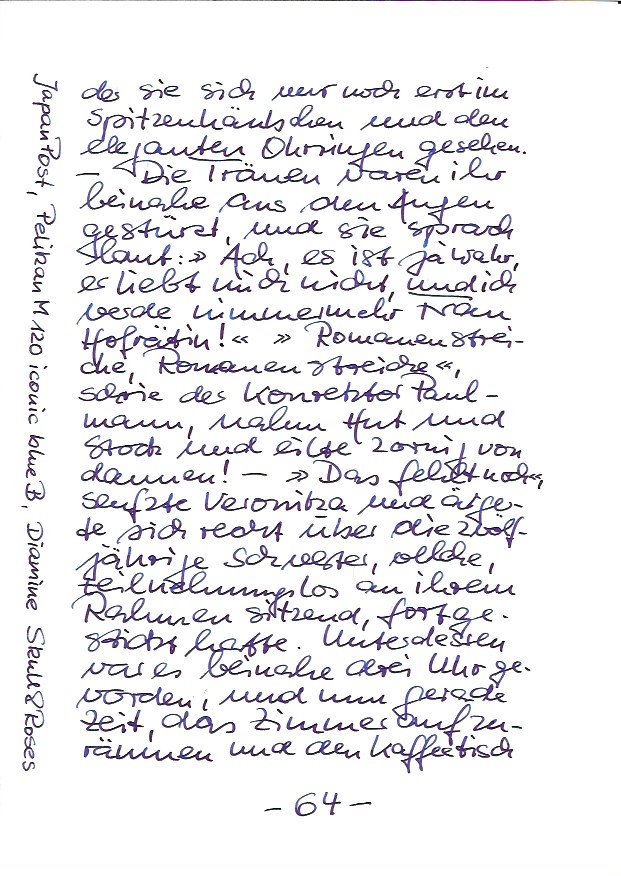 des sie sich nur noch erst im
Spitzenhäubchen und den
eleganten Ohrringen gesehen.
— Die Tränen waren ihr
beinahe aus den Augen
gestürzt, und sie sprach
laut: » Ach, es ist ja wahr,
er liebt mich nicht, und ich
werde nimmermehr Frau
Hofrätin! « » Romanenstrei-
che, Romanenstreiche «,
schrie der Konrektor Paul-
mann, nahm Hut und
Stock und eilte zornig von
dannen! — » Das fehlt noch «,
seufzte Veronika und ärger-
te sich recht über die zwölf-
jährige Schwester, welche,
teilnehmungslos an ihrem
Rahmen sitzend, fortge-
stickt hatte. Unterdessen
war es beinahe drei Uhr ge-
worden, und nun gerade
Zeit, das Zimmer aufzu-
räumen und den Kaffeetisch
– 64 –
JapanPost, Pelikan M120 iconic blue B, Diamine Skull & Roses